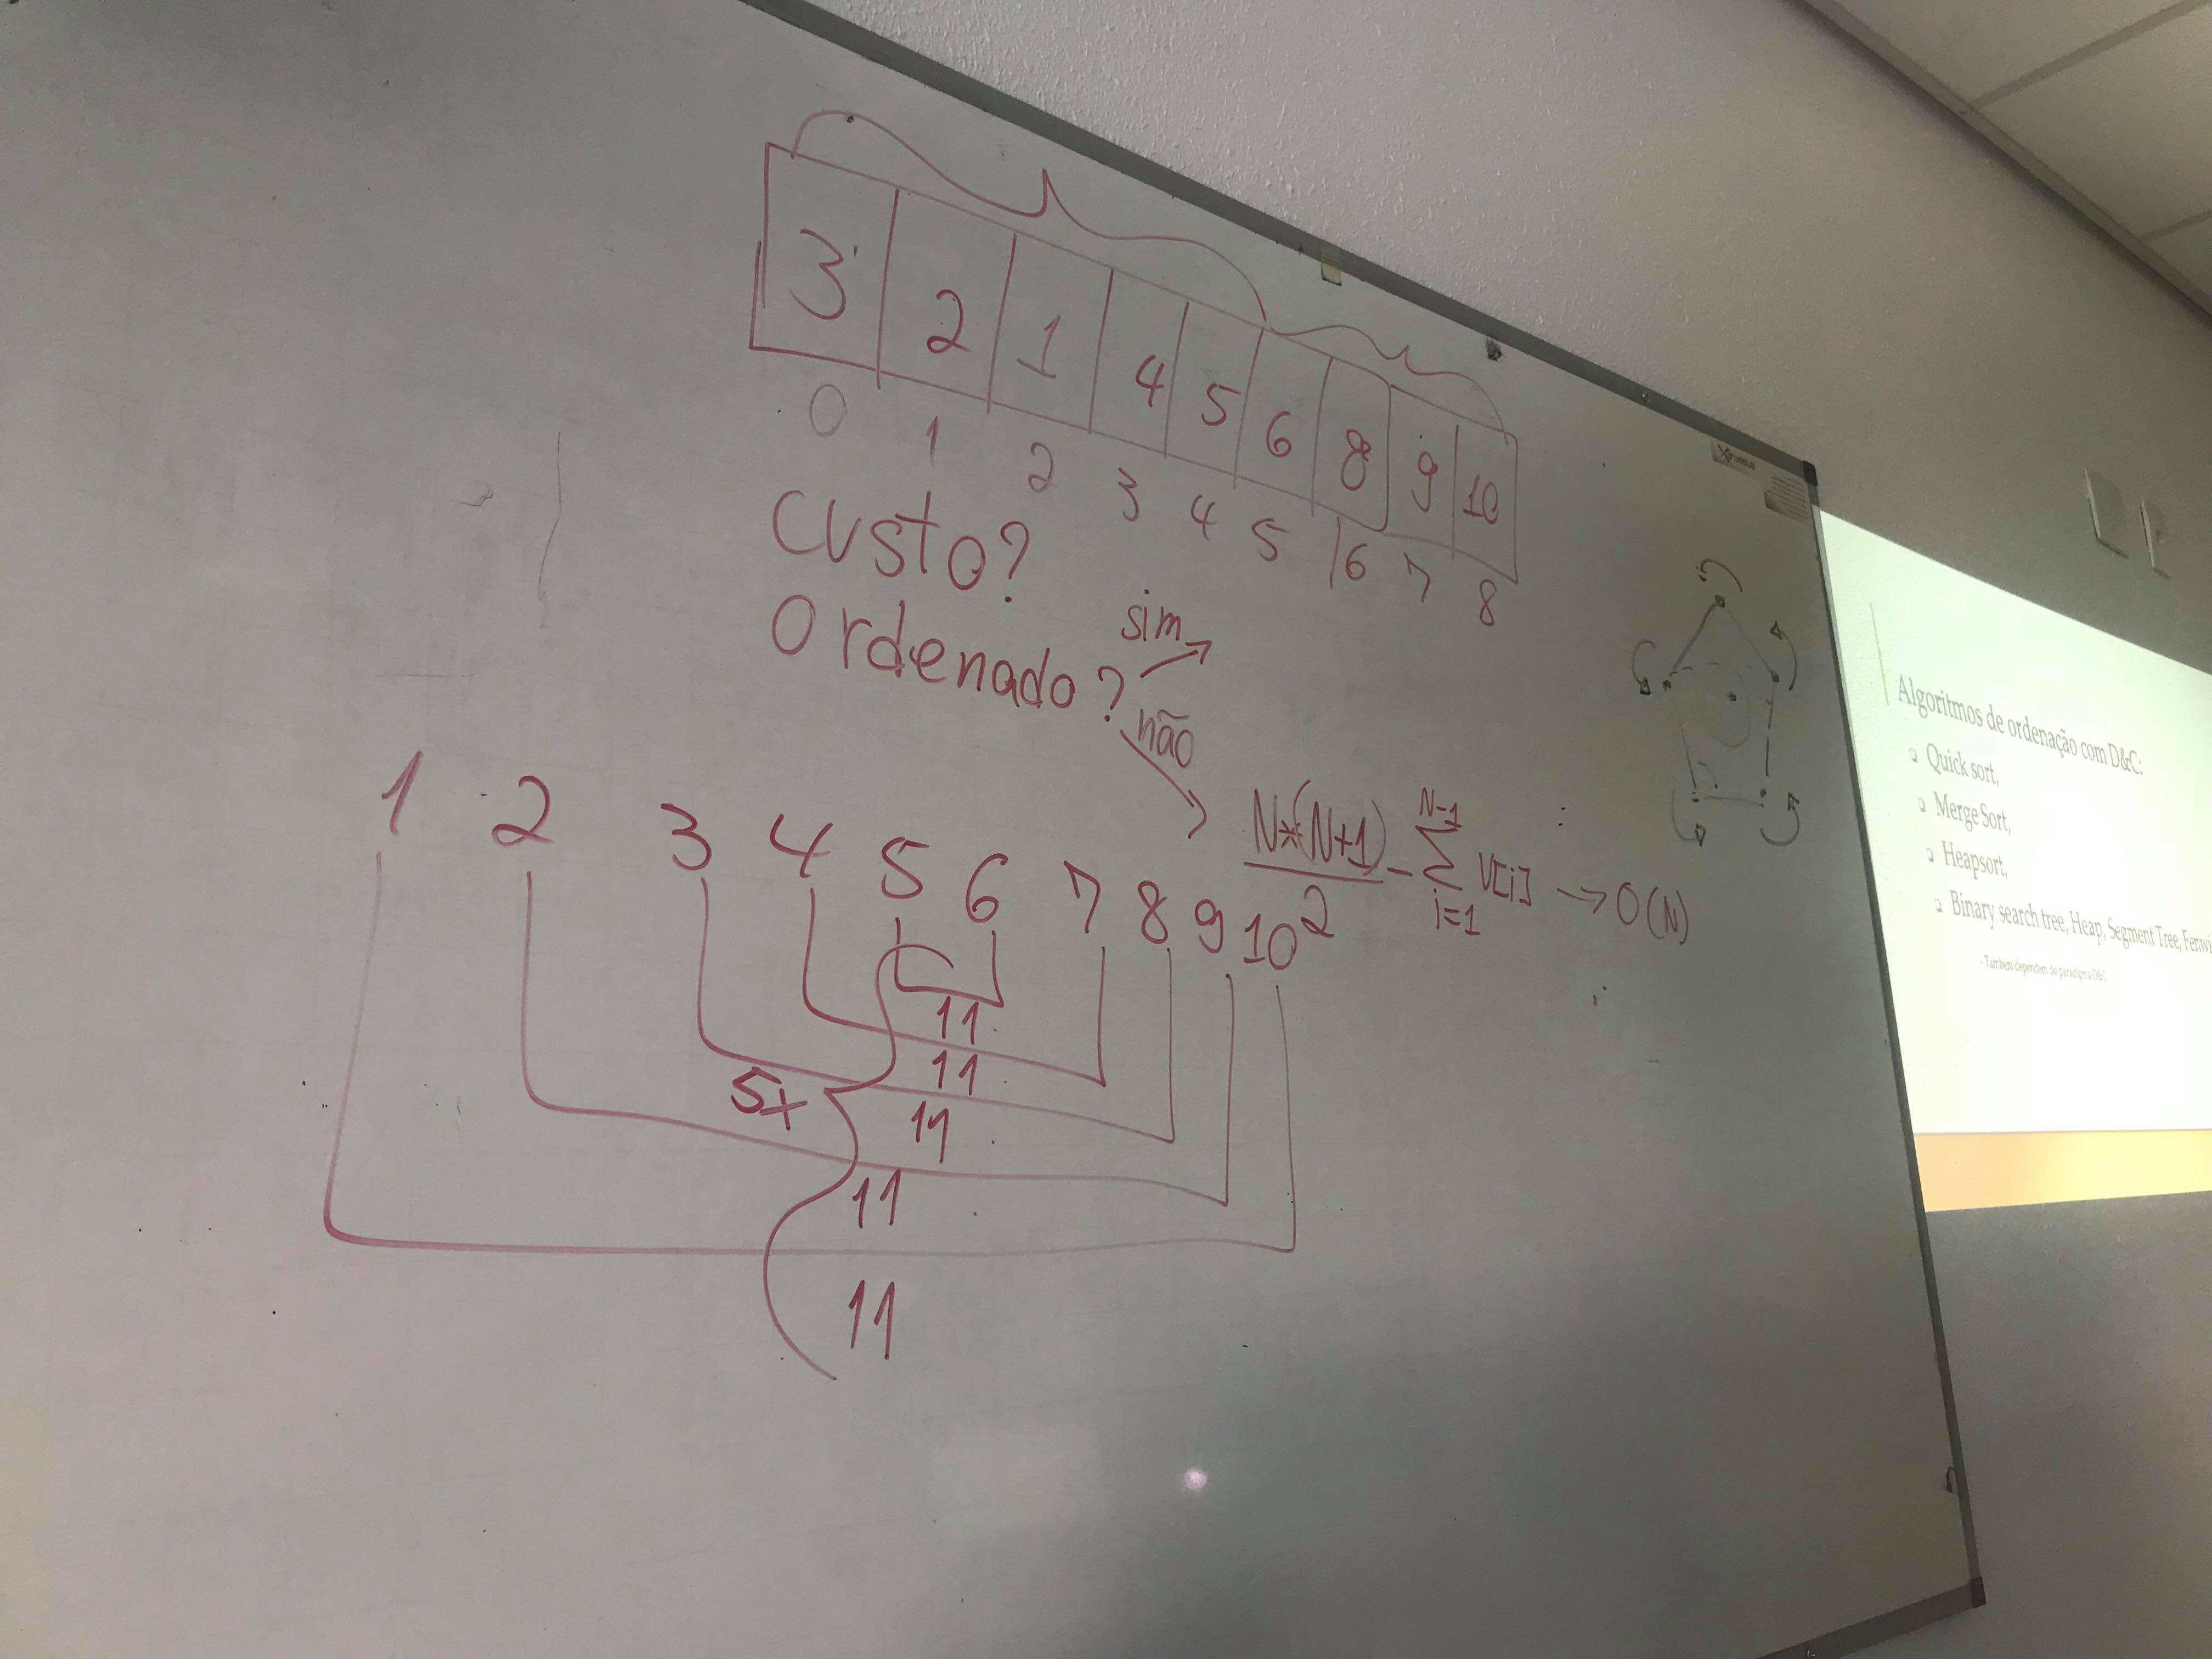 3 2 1 4 5 6 8 9 10
0 1 2 3 4 5 6 7 8
custo?
Ordenado?
sim
não
N*(N+1)/2 - ∑ V[i] → O(N)
N-1
i=1
1 2 3 4 5 6 7 8 9 10
11
11
5x
11
11
11
Algoritmos de ordenação com D&C:
Quick sort,
Merge Sort,
Heapsort,
Binary search tree, Heap, Segment Tree, Fenwi
- Também dependem do paradigma D&C